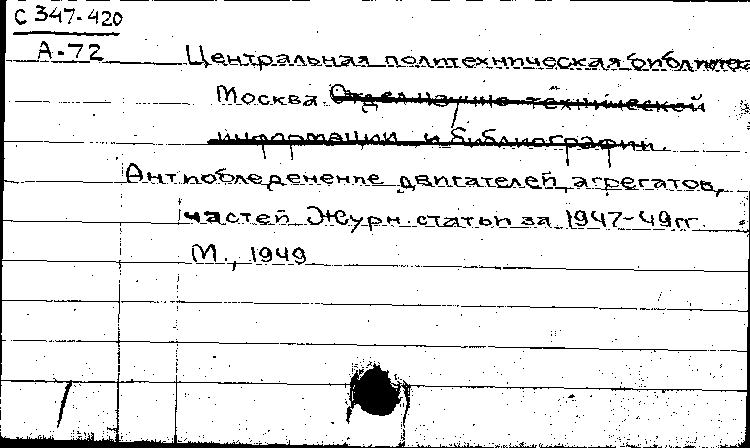 С 347-420
А-72
Центральная политехническая библиотека
Москва. Отдел научно-технической
информации и библиографии.
Антиобледенение двигателей, агрегатов,
частей Журн. статьи за 1947-49гг.
М., 1949